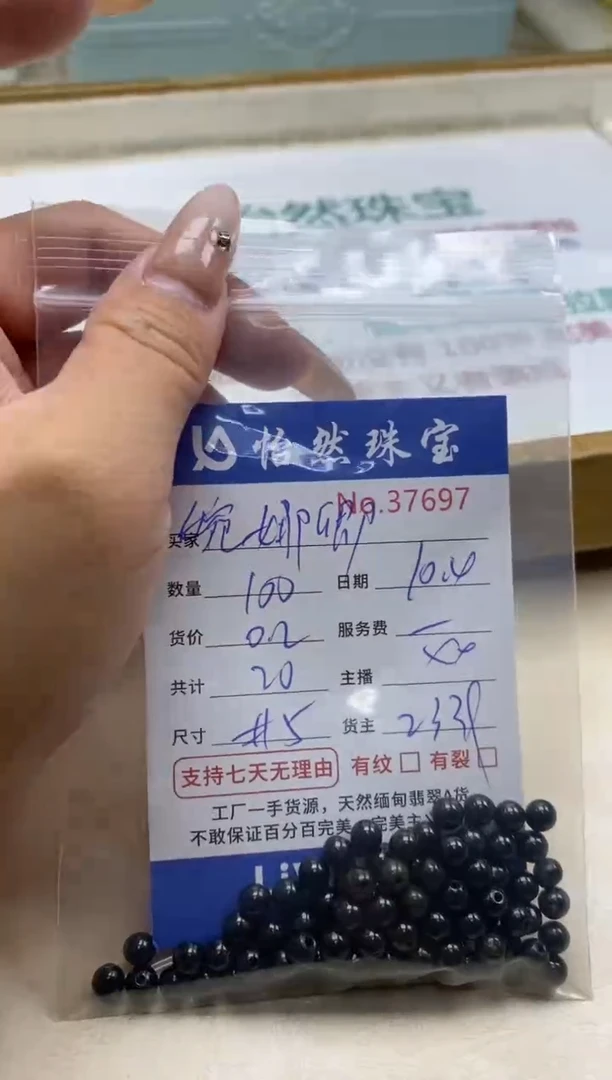 怡然珠宝
怡然珠宝
No.37697
买家 婉娜卿
数量 100 日期 10.4
货价 0.2 服务费
共计 20 主播
尺寸 #5 货主
支持七天无理由 有纹 有裂
工厂一手货源，天然缅甸翡翠A货
不敢保证百分百完美